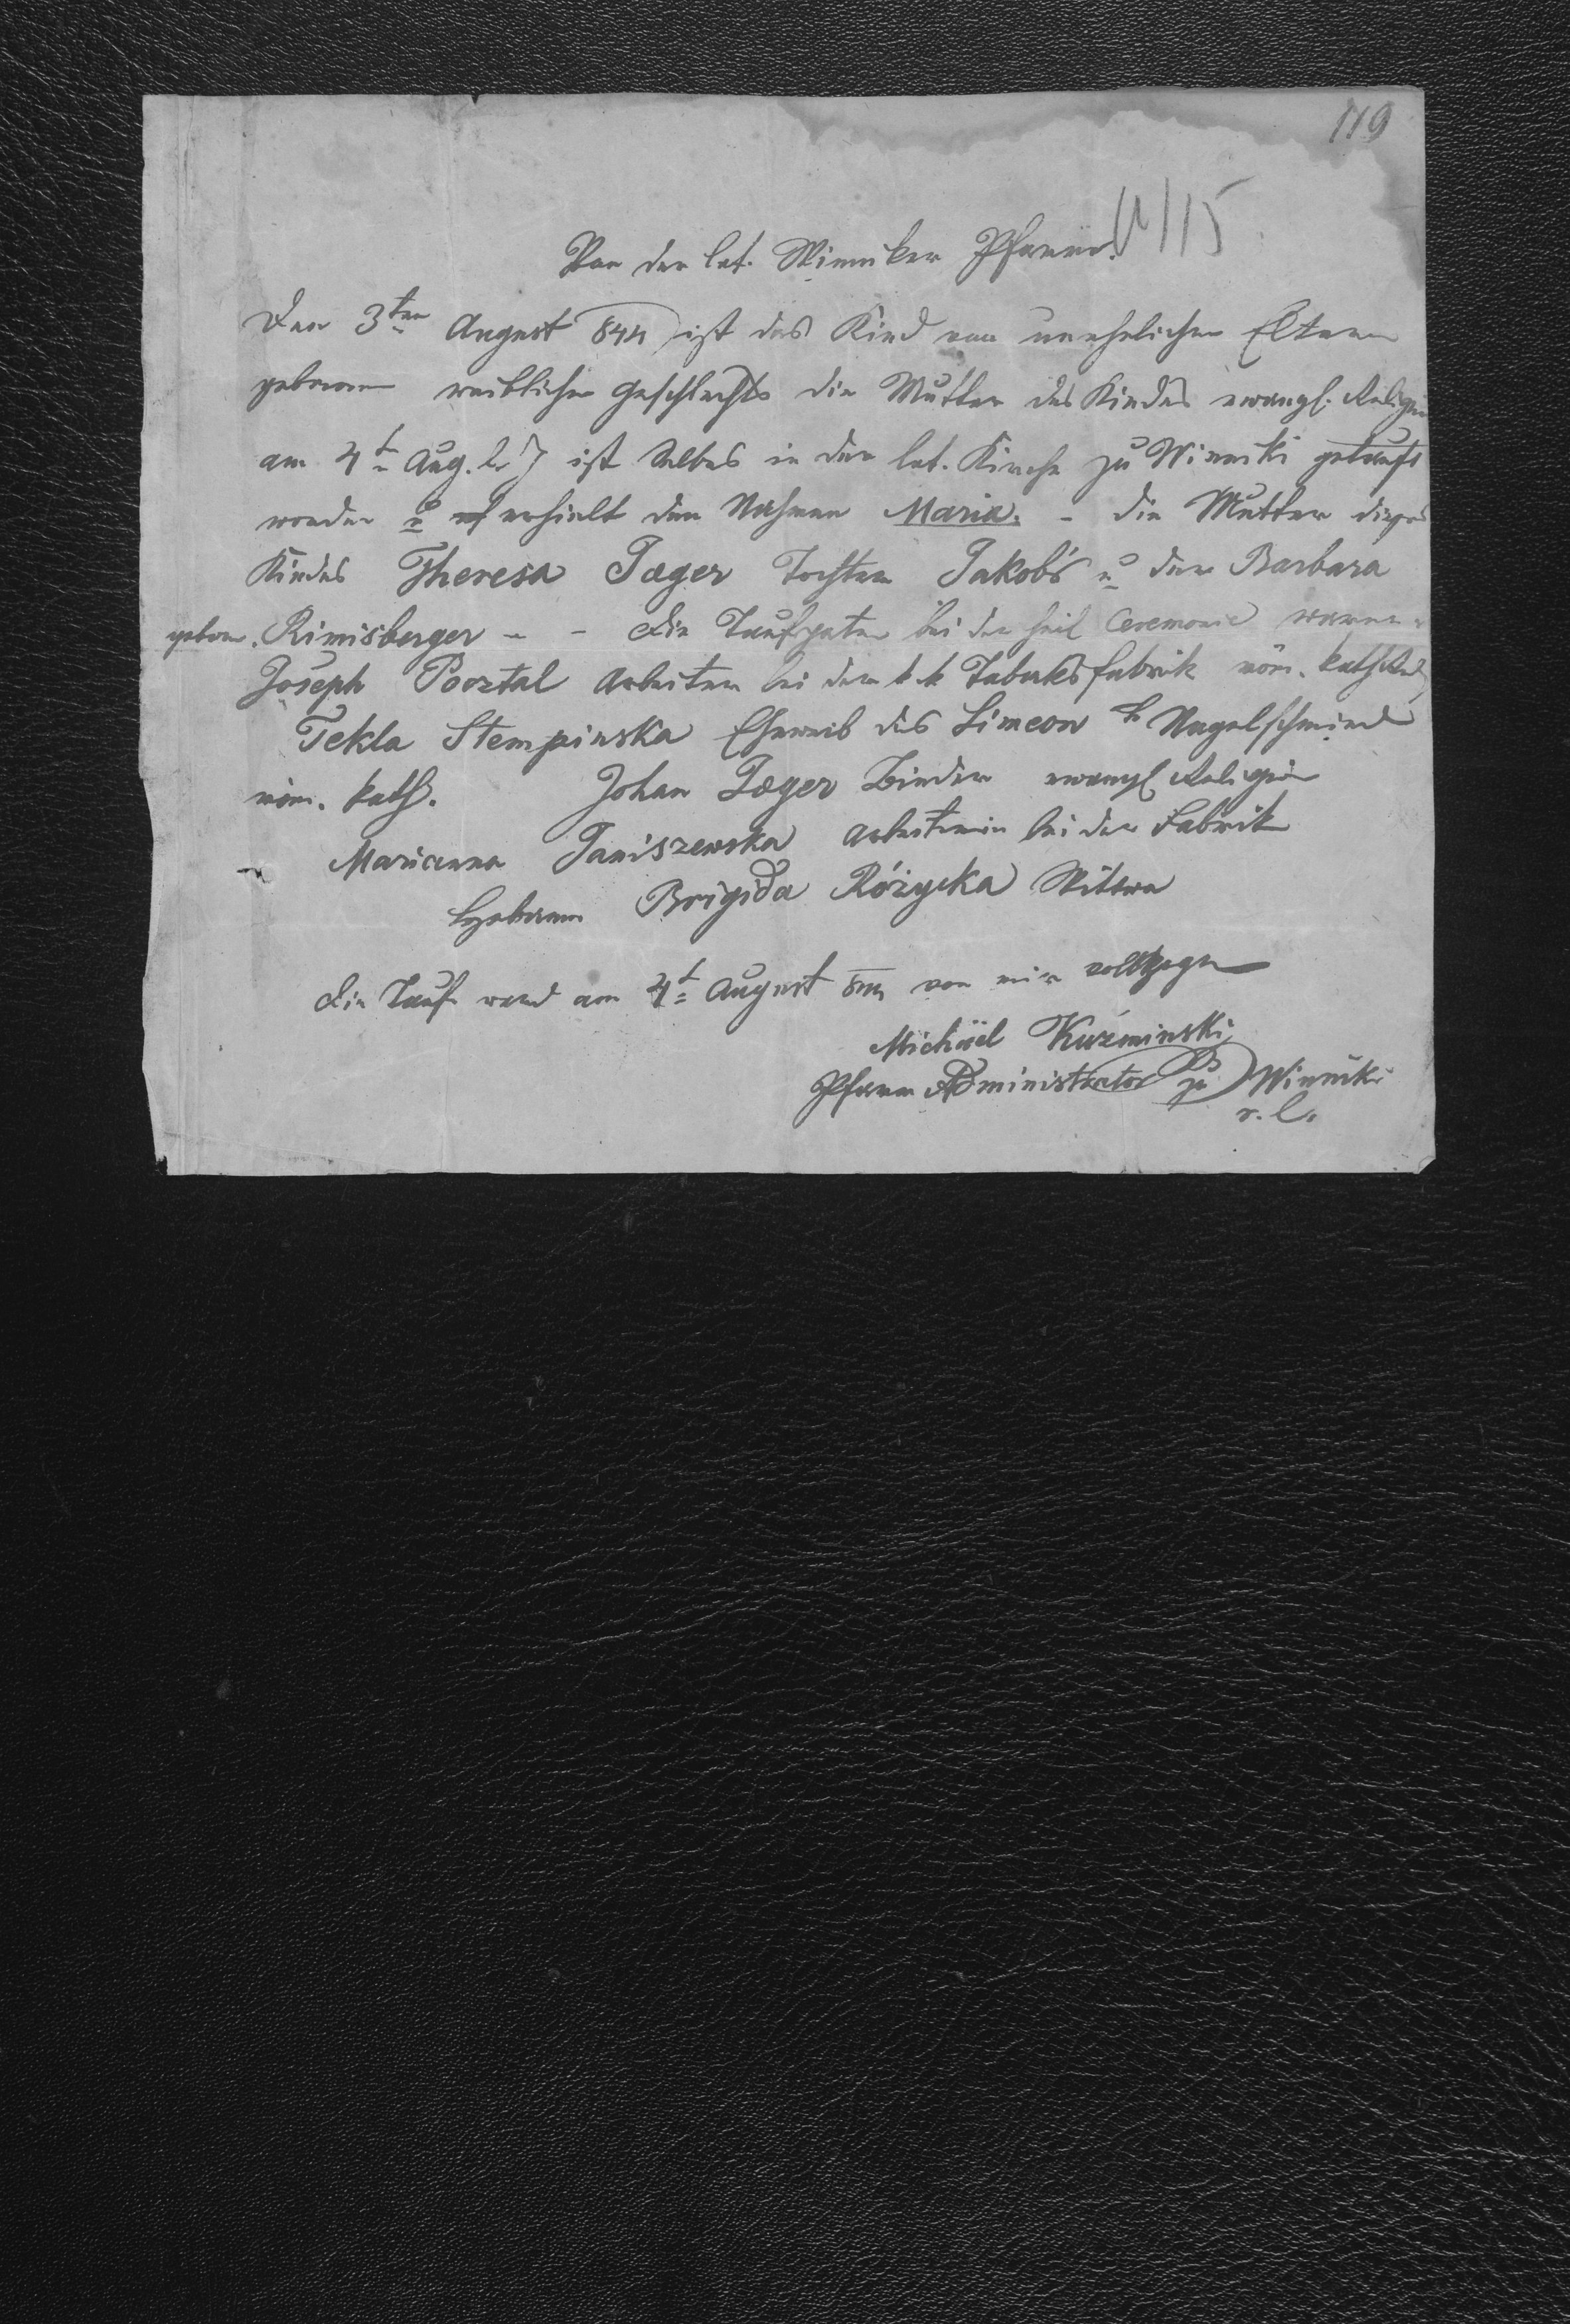 119
11/15
Von der lat. Winniker Pfarre.
Den 3ten August 844 ist das Kind von unehelichen Eltern
geboren weiblichen Geschlechts die Mutter des Kindes evangl. Religion
am 4t Aug. l. J ist selbes in der lat. Kirche zu Winniki getauft
worden u erhielt den Nahmen Maria. - die Mutter dieses
Kindes Theresa Jæger Tochter Jakob's u der Barbara
geborn. Rimisberger - - die Taufpaten bei der heil Ceremonie waren
Joseph Poortal Arbeiter bei der k k Tabaksfabrik röm. kath Rel
Tekla Stempinska Eheweib des Simeon Nagelschmied
röm. kath. Johan Jæger Binder evangl Religion
Marianna Janiszewska Arbeiterin bei der Fabrik
Hebamme Brigida Różycka Wittwe
die Taufe ward am 4t August 844 von mir vollzogen
Michäel Kuźminski
Pfarr Administrator zu Winniki
r. l.